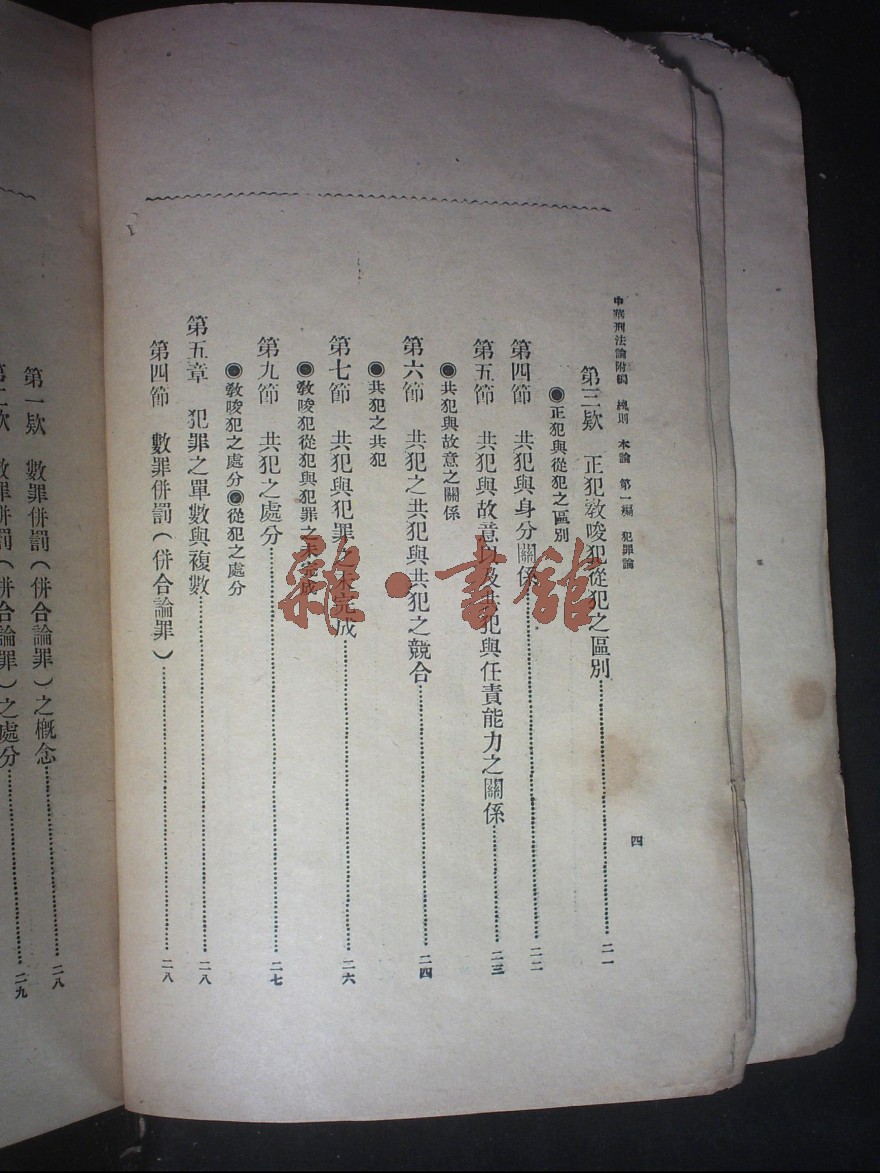 中華刑法論附編　總則　本論　第一編　犯罪論
四
第三欵　正犯敎唆犯從犯之區別…………二一
●正犯與從犯之區別
第四節　共犯與身分關係…………二二
第五節　共犯與故意以及共犯與任責能力之關係…………二三
●共犯與故意之關係
第六節　共犯之共犯與共犯之競合…………二四
●共犯之共犯
第七節　共犯與犯罪之未完成…………二六
●敎唆犯從犯與犯罪之未完成
第九節　共犯之處分…………二七
●敎唆犯之處分●從犯之處分
第五章　犯罪之單數與複數…………二八
第四節　數罪併罰（併合論罪）…………二八
第一欵　數罪併罰（併合論罪）之概念…………二八
第二欵　數罪併罰（併合論罪）之處分…………二九
雜·書館